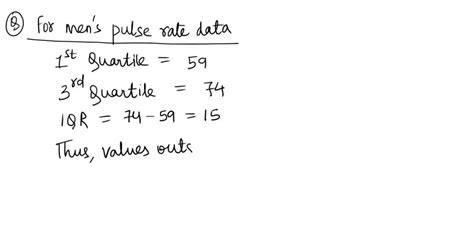 Q) For men's pulse rate data
1st Quartile = 59
3rd Quartile = 74
IQR = 74 - 59 = 15
Thus, values outs